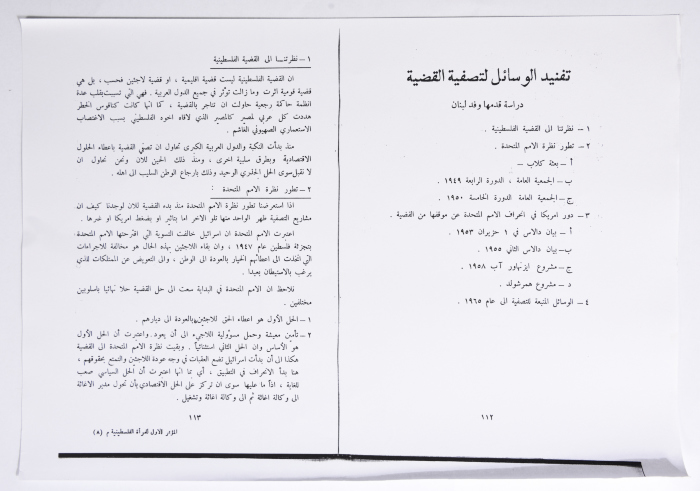 تفنيد الوسائل لتصفية القضية
دراسة قدمها وفد لبنان
١ – نظرتنا الى القضية الفلسطينية .
٢ – تطور نظرة الامم المتحدة .
أ – بعثة كلاب –
ب – الجمعية العامة ، الدورة الرابعة ١٩٤٩
ج – الجمعية العامة ، الدورة الخامسة ١٩٥٠
٣ – دور امريكا في انحراف الامم المتحدة عن موقفها من القضية .
أ – بيان دالاس في ١ حزيران ١٩٥٣
ب – بيان دالاس الثاني ١٩٥٥
ج – مشروع ايزنهاور آب ١٩٥٨
د – مشروع همرشولد .
٤ – الوسائل المتبعة للتصفية الى عام ١٩٦٥ .
١١٢
١ – نظرتنا الى القضية الفلسطينية
ان القضية الفلسطينية ليست قضية اقليمية ، او قضية لاجئين فحسب ، بل هي
قضية قومية اثرت وما زالت تؤثر في جميع الدول العربية . فهي التي تسببت بقلب عدة
انظمة حاكمة رجعية حاولت ان تتاجر بالقضية ، كما انها كانت كناقوس الخطر
هددت كل عربي لمصير كالمصير الذي لاقاه اخوه الفلسطيني بسبب الاغتصاب
الاستعماري الصهيوني الغاشم .
منذ بدأت النكبة والدول العربية الكبرى تحاول ان تصفي القضية باعطاء الحلول
الاقتصادية وبطرق سلبية اخرى ، ومنذ ذلك الحين للآن ونحن نحاول ان
لا نقبل سوى الحل الجذري الوحيد وذلك بارجاع الوطن السليب الى اهله .
٢ – تطور نظرة الامم المتحدة :
اذا استعرضنا تطور نظرة الامم المتحدة منذ بدء القضية للآن لوجدنا كيف ان
مشاريع التصفية ظهر الواحد منها تلو الاخر اما بتاثير او بضغط امريكا او غيرها .
اعتبرت الامم المتحدة ان اسرائيل خالفت التسوية التي اقترحتها الامم المتحدة
بتجزئة فلسطين عام ١٩٤٧ ، وان بقاء اللاجئين بهذه الحال هو مخالفة للاجراءات
التي اتخذت الى اعطائهم الخيار بالعودة الى الوطن ، والى التعويض عن الممتلكات للذي
يرغب بالاستيطان بعيدا .
نلاحظ ان الامم المتحدة في البداية سعت الى حل القضية حلا نهائيا باسلوبين
مختلفين .
١ – الحل الأول هو اعطاء الحق للاجئين بالعودة الى ديارهم .
٢ – تأمين معيشة وحمل مسؤولية اللاجىء الى أن يعود . واعتبرت أن الحل الأول
هو الأساس وان الحل الثاني استثنائيا . وبقيت نظرة الامم المتحدة الى القضية
هكذا الى أن بدأت اسرائيل تضع العقبات في وجه عودة اللاجئين والتمتع بحقوقهم ،
هنا بدأ الانحراف في التطبيق ، أي بما انها اعتبرت أن الحل السياسي صعب
للغاية ، اذا ما عليها سوى ان تركز على الحل الاقتصادي بأن تحول مدير الاغاثة
الى وكالة اغاثة ثم الى وكالة اغاثة وتشغيل .
١١٣
المؤتمر الاول للمرأة الفلسطينية م (٨)